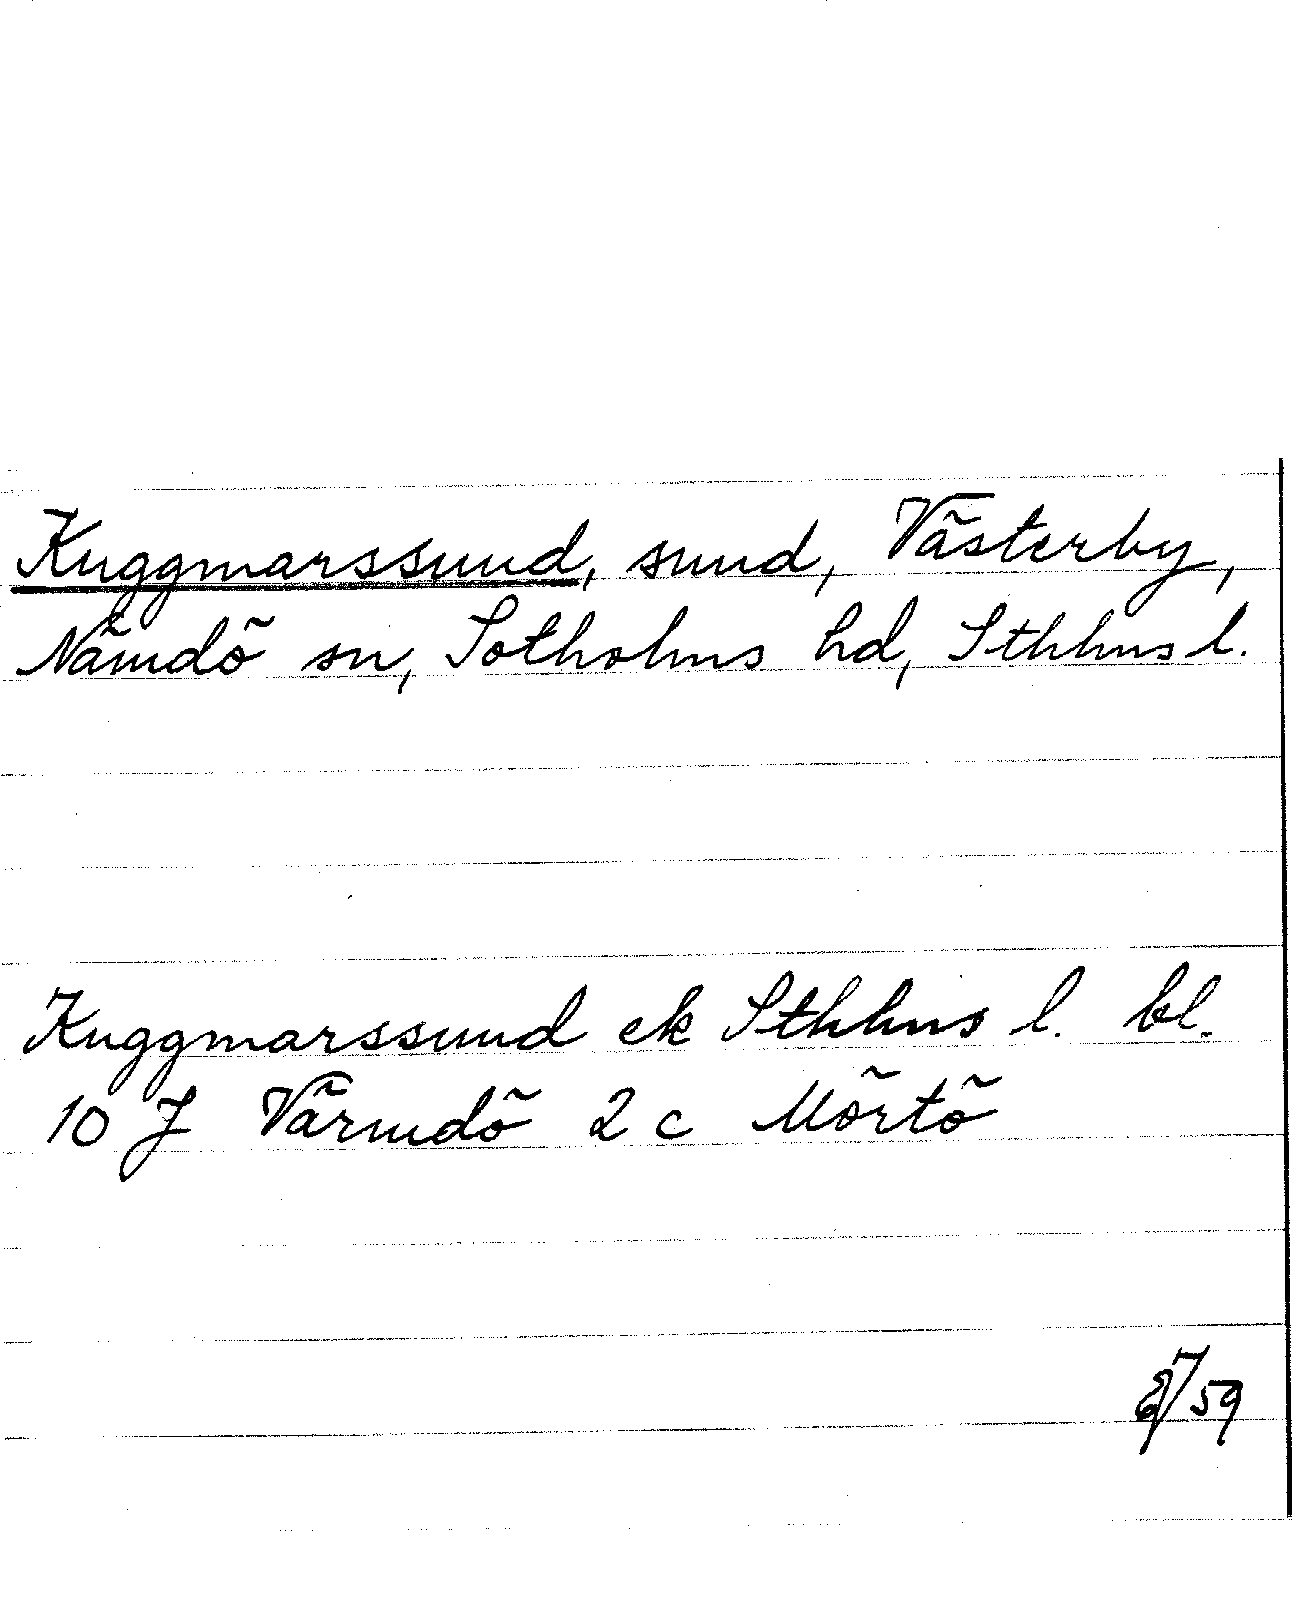 Kuggmarssund, sund, Västerby,
Nämdö sn, Sotholms hd, Sthlms l.
Kuggmarssund ek Sthlms l. bl.
10 J Värmdö 2 c Mörtö
59